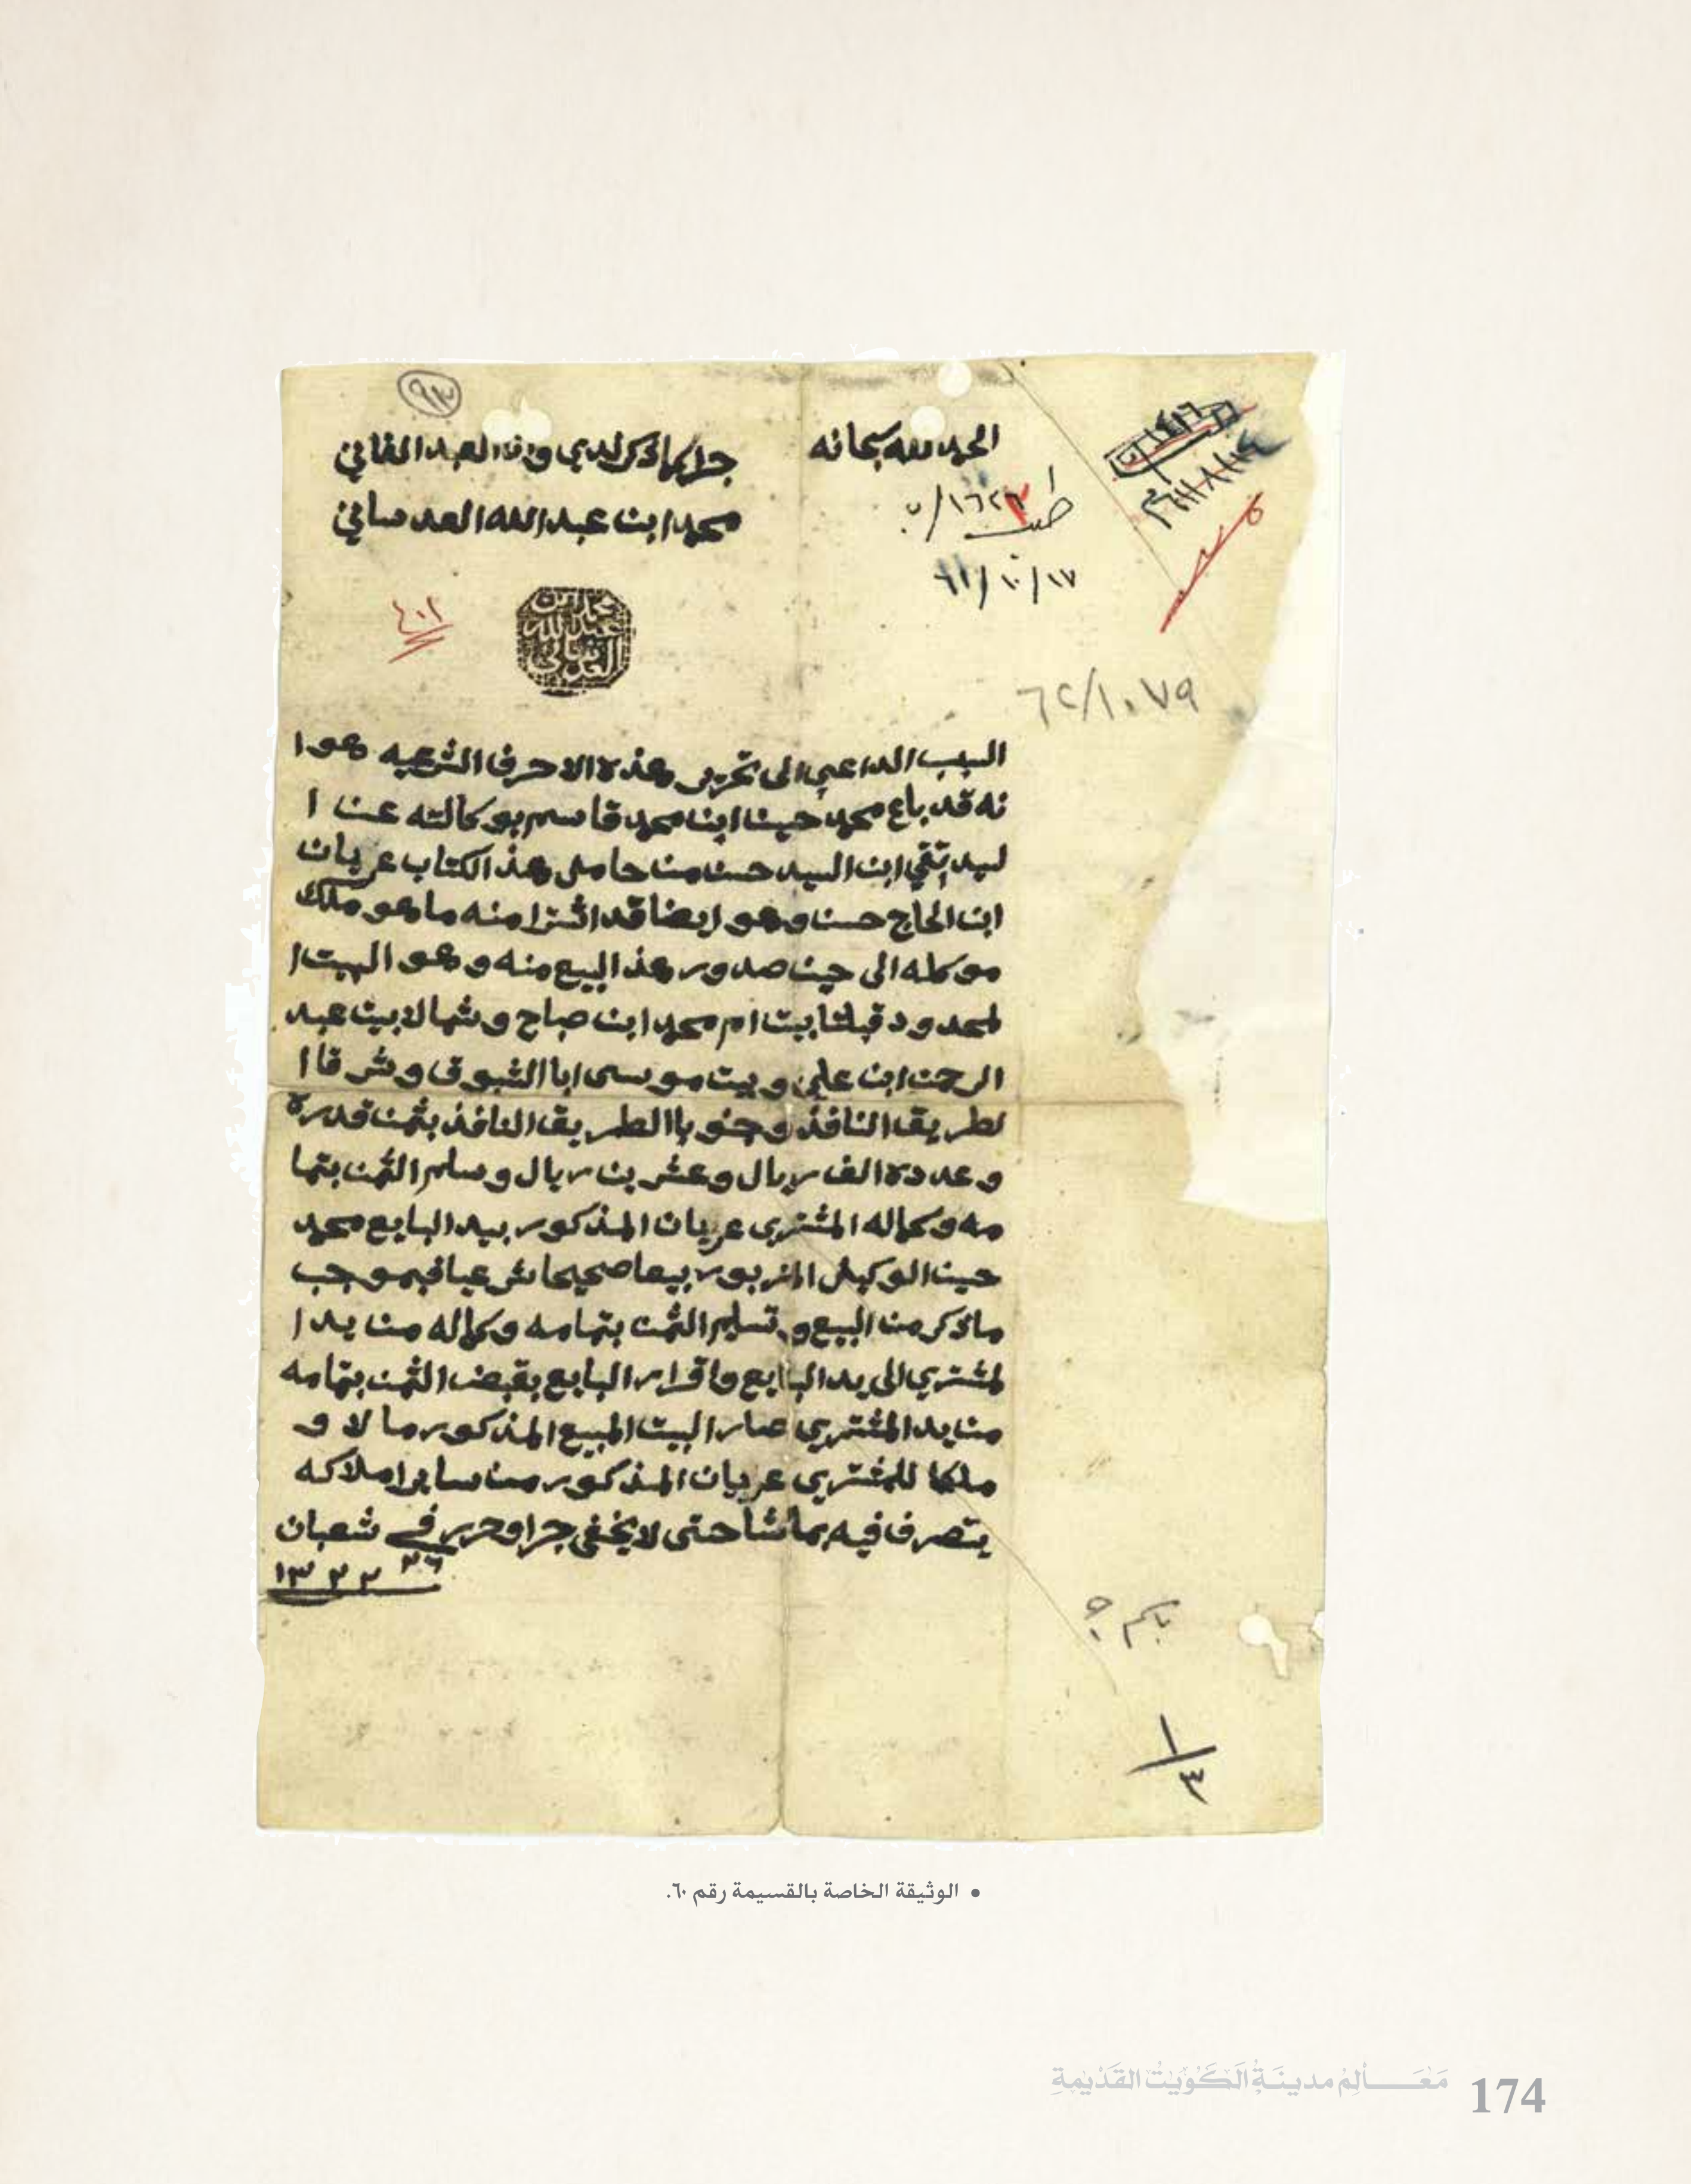 ٩٣
الحمد لله سبحانه
جرا ما ذكر لدي وانا العبد الفاني
محمد ابن عبد الله العدساني
محمد ابن
عبد الله
العدساني
١٤١٦
طلب ١٦٢٣/
٦١/١٠/١٧
٤٠٢
٦٢/١٠٧٩
السبب الداعي الى تحرير هذه الاحرف الشرعيه هوا
نه قد باع محمد حسين ابن محمد قاسم بوكالته عن ا
لسيد تقي ابن السيد حسن من حامل هذ الكتاب عريان
ابن الحاج حسن وهو ايضا قد اشترا منه ما هو ملك
موكله الى حين صدور هذ البيع منه وهو البيت ا
لمحدود قبلتا بيت ام محمد ابن صباح وشمالا بيت عبد
الرحمن ابن علي وبيت موسى ابا الشبوق وشرقا ا
لطريق النافذ وجنوبا الطريق النافذ بثمن قدره
وعدده الف ريال وعشرين ريال وسلم الثمن بتما
مه وكماله المشتري عريان المذكور بيد البايع محمد
حسين الوكيل المزبور بيعا صحيحا شرعيا فبموجب
ما ذكر من البيع و تسليم الثمن بتمامه وكماله من يد ا
لمشتري الى يد البايع واقرار البايع بقبض الثمن بتمامه
من يد المشتري صار البيت المبيع المذكور مالا و
ملكا للمشتري عريان المذكور من ساير املاكه
يتصرف فيه بما شا حتى لا يخفى جرا وحرر في شعبان
٢٦ ١٣٣٢
بكم ؟
١/٣
• الوثيقة الخاصة بالقسيمة رقم ٦٠.
مَعَــالِمُ مدينَةِ الكُوَيتْ القَدْيمةِ 174